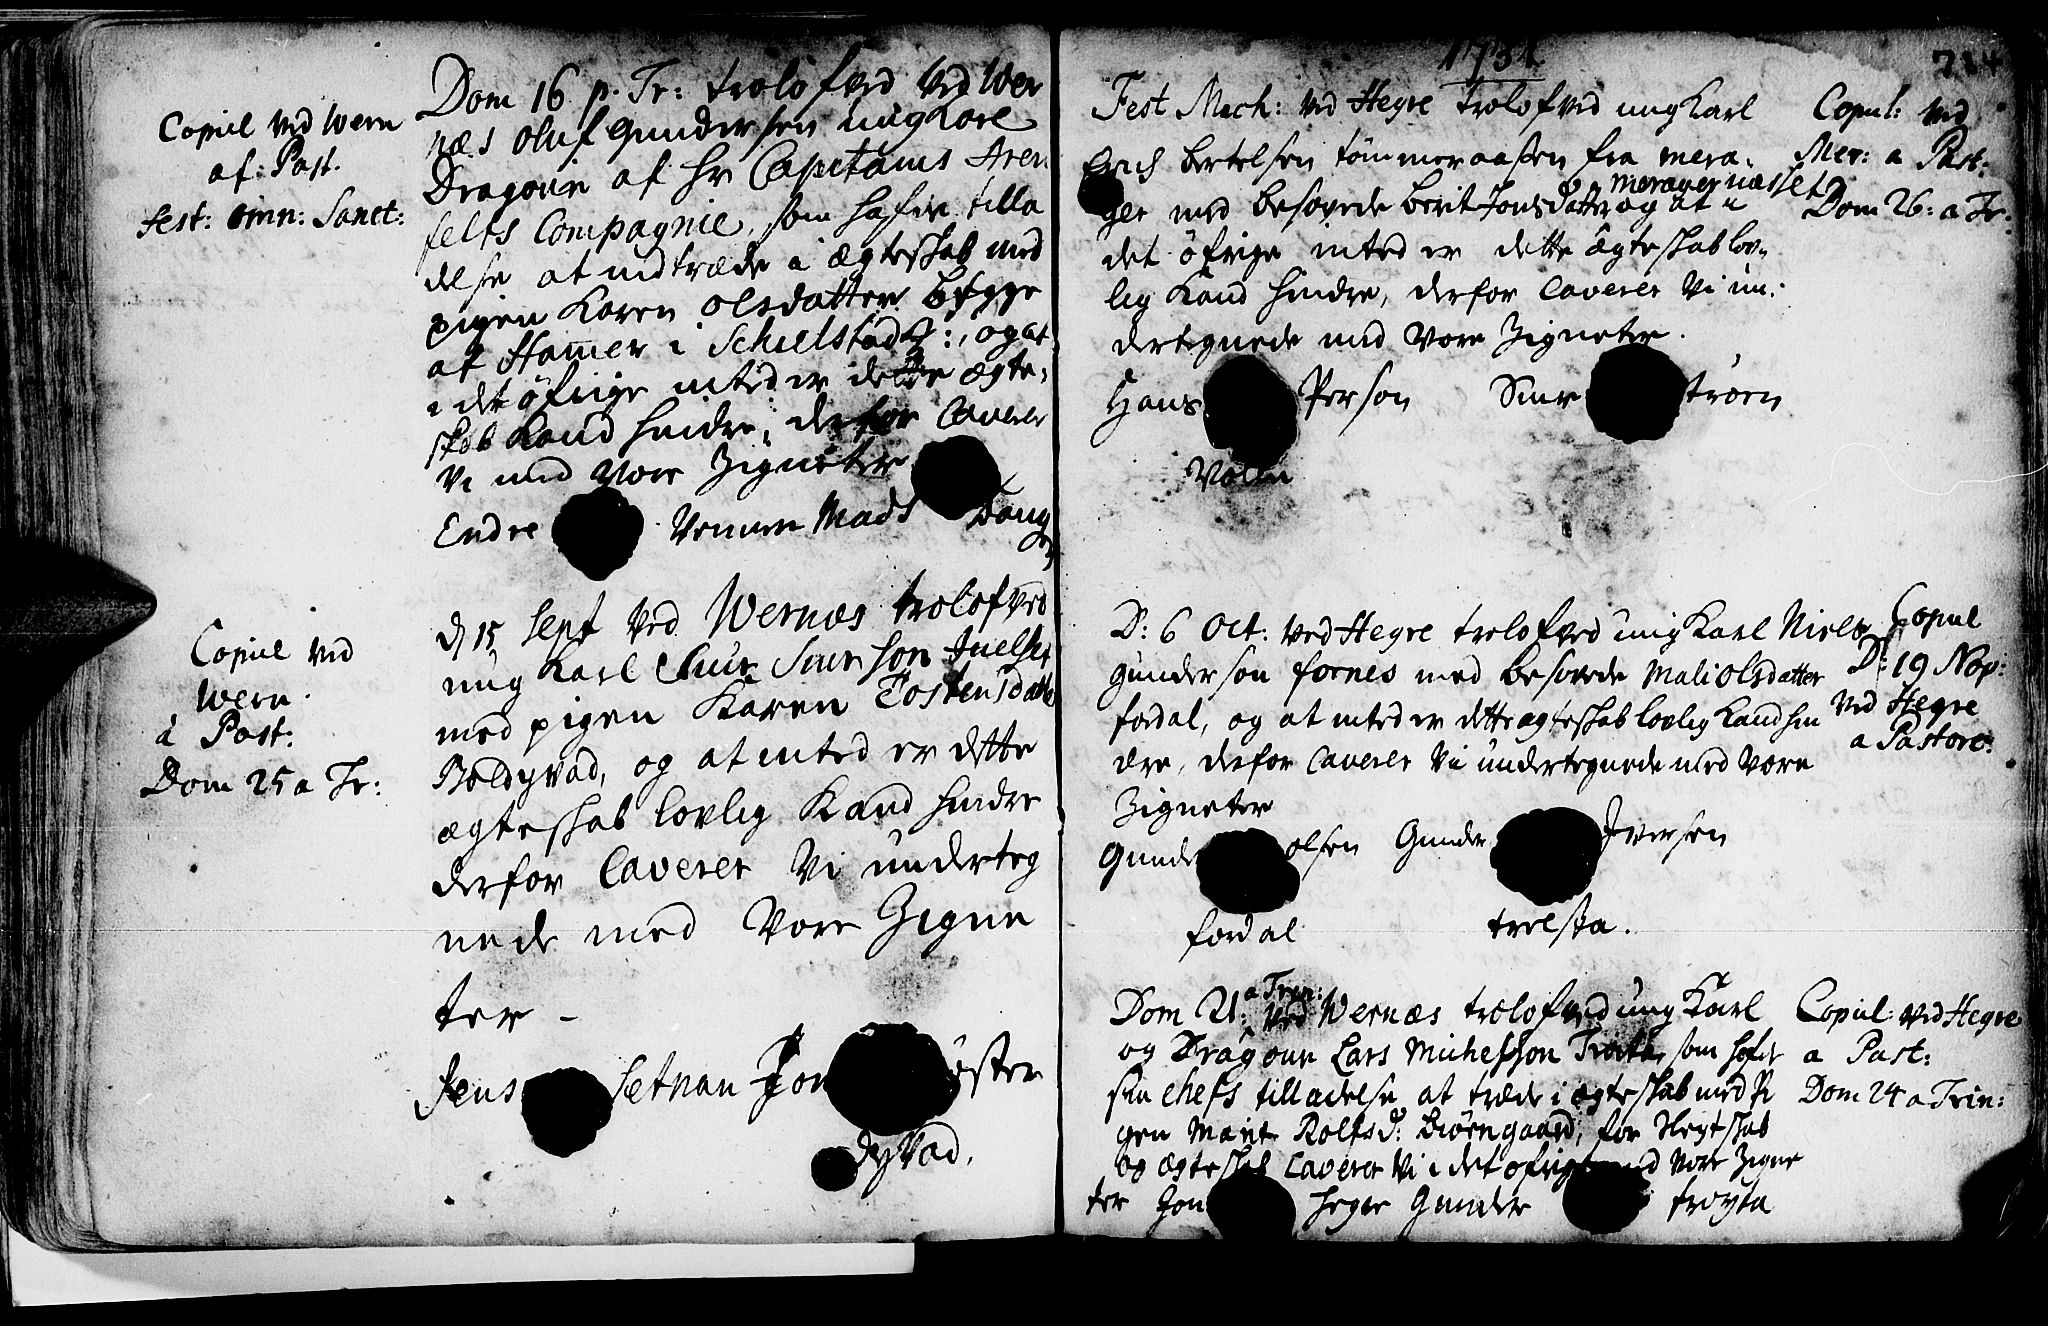 Copul ved Wern
af: Past.
fest: Omn: Sanct:
Dom 16 p. Tr: trolofved ved Wer
næs Oluf Gundersen ung Karl
Dragoun af Hr Capitains Aren
felts Compagnie, som hafver tilla
delse at indtræde i ægteskab med
pigen Karen Olsdatter
af Hamer i Schielstad, og at
i det öfrige inted er dette ægte-
skab kand hindre, derfor Caverer
Vi med Vore Zigneter
Endre Vennen Mads
Copul ved
Wern.
a Past:
Dom 25 a Tr:
d 15 Sept ved Wernæs trolofved
ung Karl Siursson
med pigen Karen Tostensdatter
og at inted er dette
ægteskab lovlig Kand hindre
derfor Caverer Vi underteg
nede med Vore Zigne
ter -
Jens Setnan Jon
dyvad,
1731
724
Fest Mich: ved Hegre trolofved ung Karl
Erich Bertelsen tömmeraasen fra mera-
meragernæsset
ger med besovede Berit Jonsdatter og at i
det öfrige inted er dette ægteskab lov-
lig Kand hindre, derfor Caverer Vi un-
dertegnede med Vore Zigneter.
Hans Person
Volen
Copul: ved
Mer: a Past:
Dom 26: a Tr:
D: 6 Oct: ved Hegre trolofved ung Karl Niels
Gunderson fornes med besovede Mali Olsdatter
fordal, og at inted er dette ægteskab lovlig Kand hin
dre, derfor Caverer Vi undertegnede med Vore
Zigneter
Gunder olsen Gunder Iversen
fordal trelsta.
Copul
D: 19 Nov:
ved Hegre
a Pastore:
a Trin:
Dom 21: ved Wernæs trolofved ung Karl
og Dragoun Lars Michelson som hafer
sin chefs tilladelse at træde i ægteskab med Pi
gen Marit Rolfsd: Biörngaard, for
og ægteskab Caverer Vi i det ofrige med Vore Zigne
ter Jon Hegre Gunder troyta
Copul: ved Hegre
a Past:
Dom 24 a Trin: